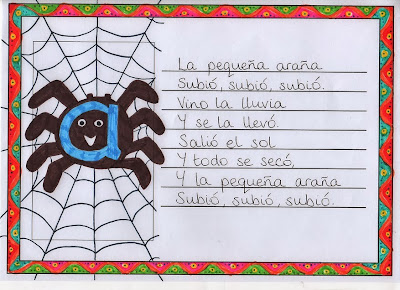 a
La pequeña araña
Subió, subió, subió.
Vino la lluvia
Y se la llevó.
Salió el sol
Y todo se secó,
Y la pequeña araña
Subió, subió, subió.